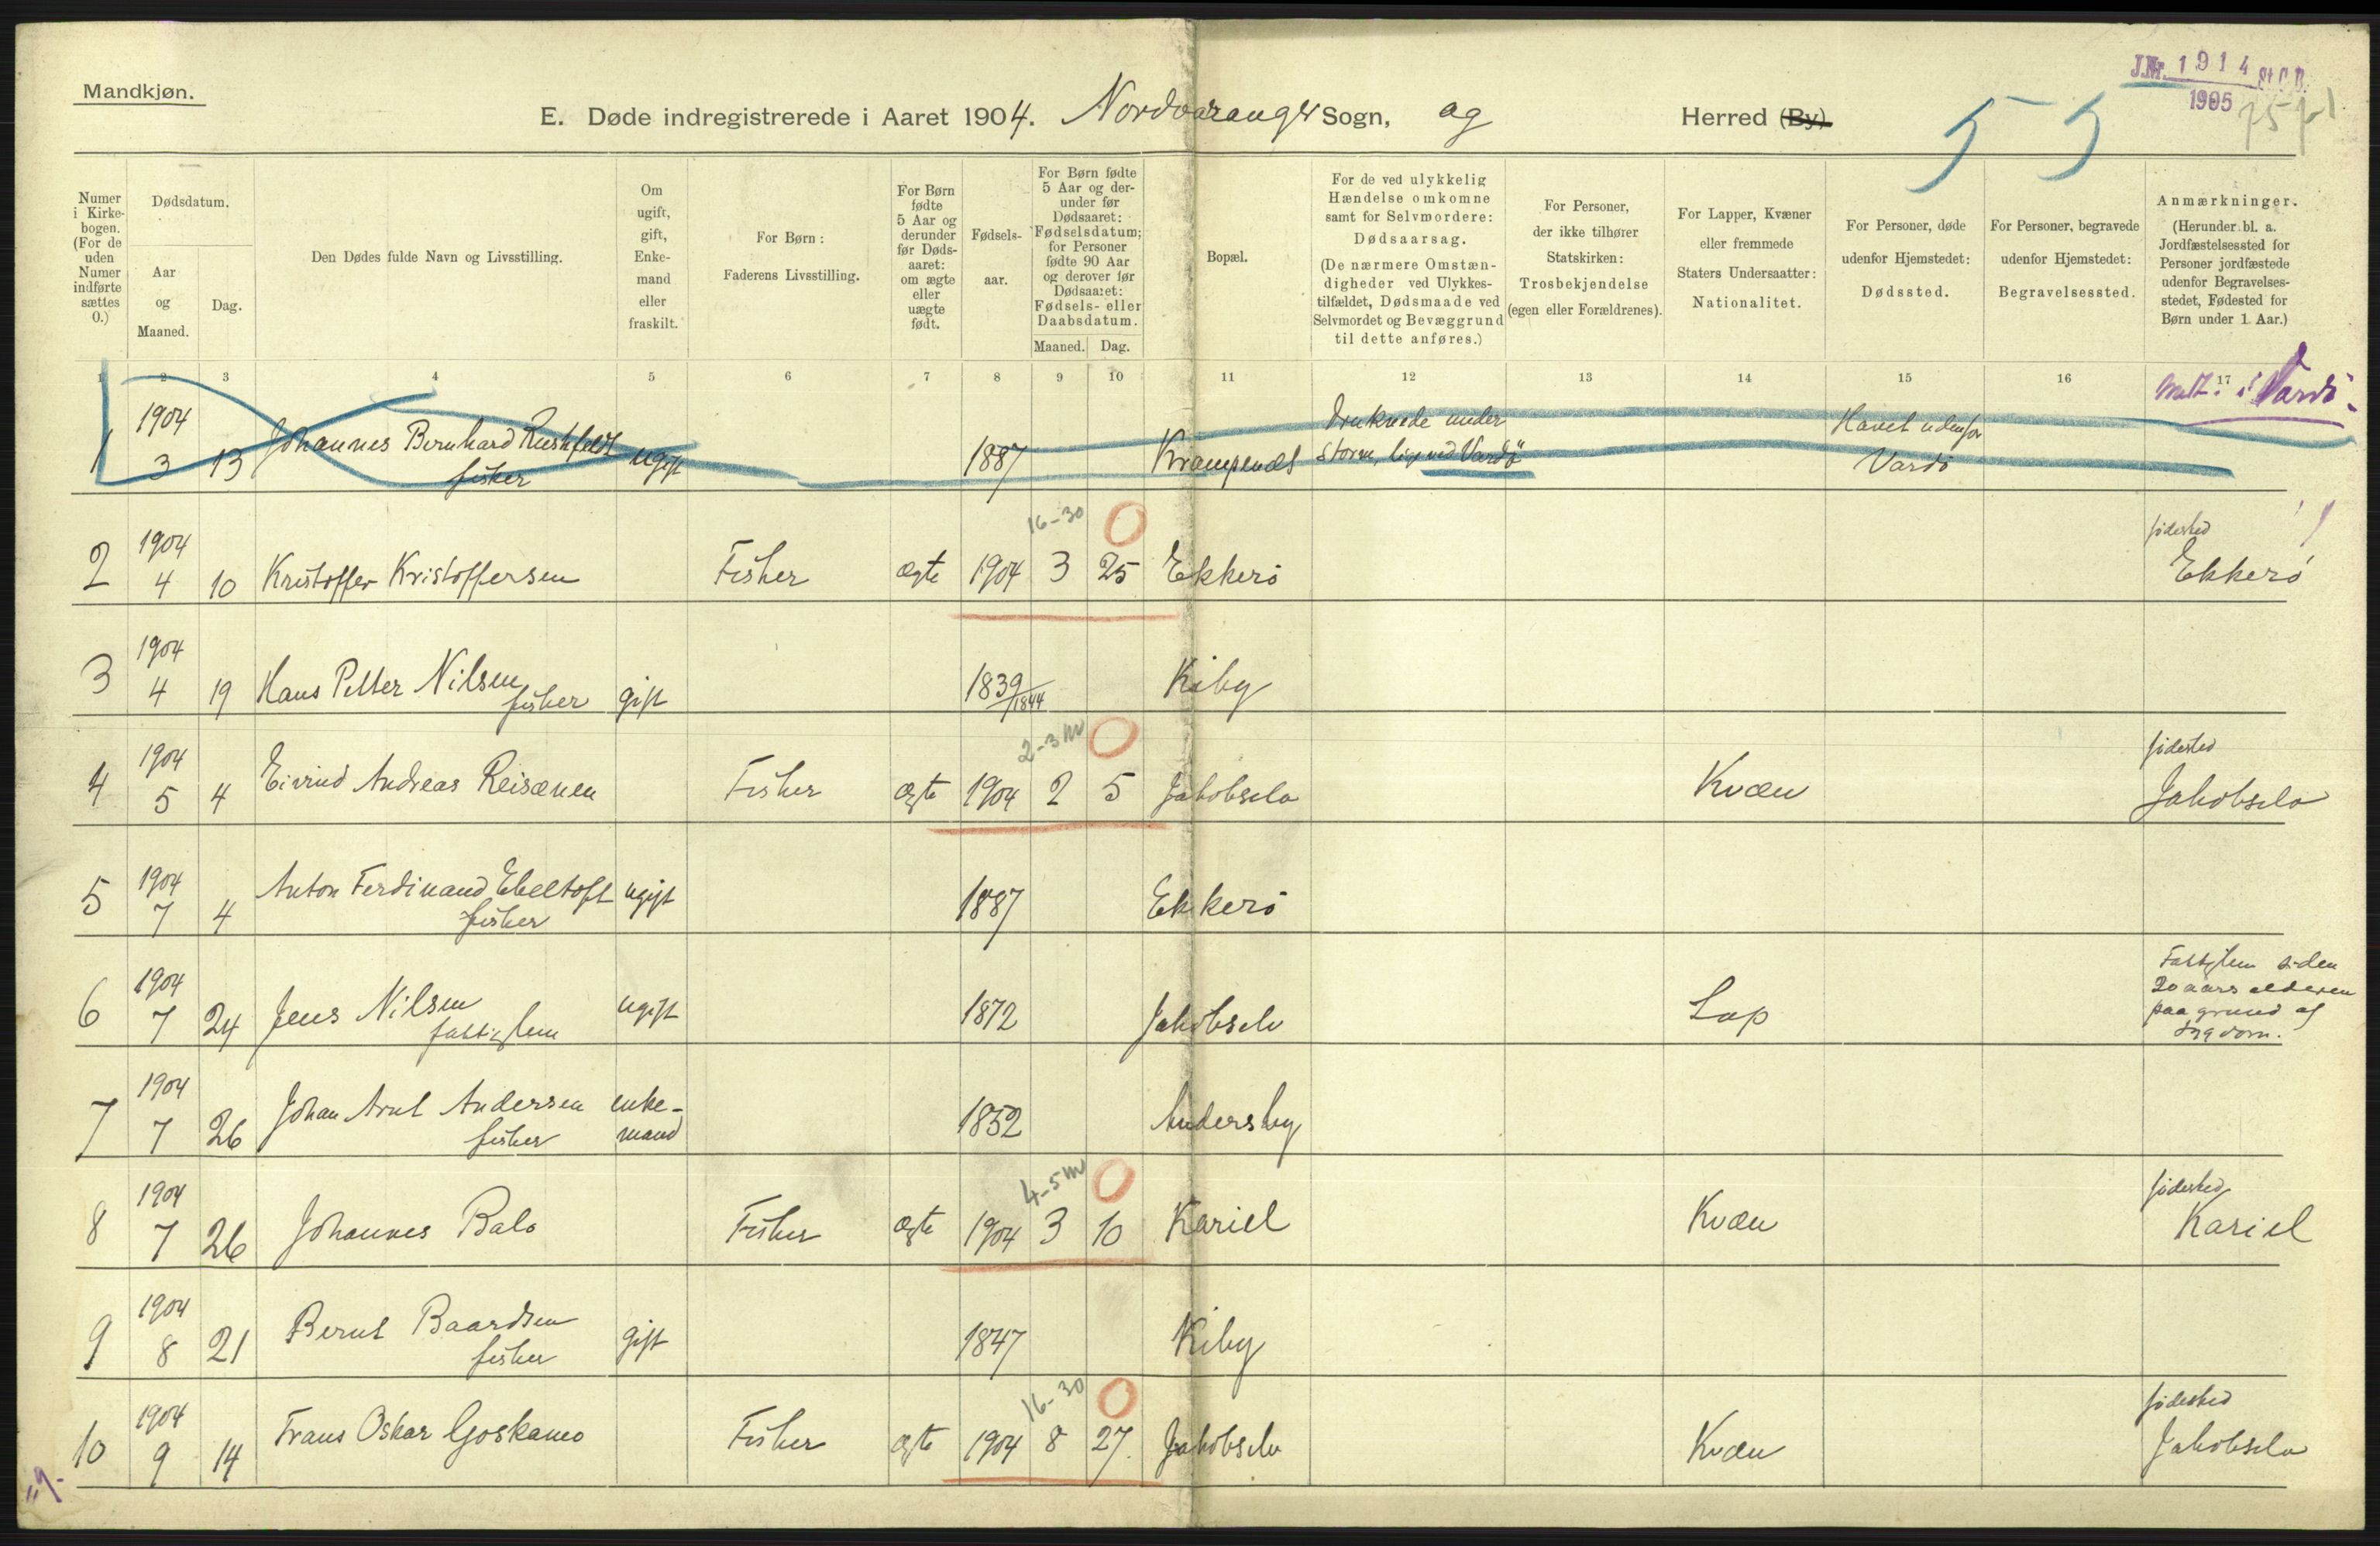 Mandkjøn.
J.Nr. 1914 St. C. B.
1905
E. Døde indregistrerede i Aaret 1904. Nordvaranger Sogn, og Herred (By).
55
Numer i Kirkebogen. (For de uden Numer indførte sættes 0.)
Dødsdatum.
Aar og Maaned.
Dag.
Den Dødes fulde Navn og Livsstilling.
Om ugift, gift, Enkemand eller fraskilt.
For Børn: Faderens Livsstilling.
For Børn fødte 5 Aar og derunder før Dødsaaret: om ægte eller uægte født.
Fødselsaar.
For Børn fødte 5 Aar og derunder før Dødsaaret: Fødselsdatum; for Personer fødte 90 Aar og derover før Dødsaaret: Fødsels- eller Daabsdatum.
Maaned. Dag.
Bopæl.
For de ved ulykkelig Hændelse omkomne samt for Selvmordere: Dødsaarsag. (De nærmere Omstændigheder ved Ulykkestilfældet, Dødsmaade ved Selvmordet og Bevæggrund til dette anføres.)
For Personer, der ikke tilhører Statskirken: Trosbekjendelse (egen eller Forældrenes).
For Lapper, Kvæner eller fremmede Staters Undersaatter: Nationalitet.
For Personer, døde udenfor Hjemstedet: Dødssted.
For Personer, begravede udenfor Hjemstedet: Begravelsessted.
Anmærkninger. (Herunder bl. a. Jordfæstelsessted for Personer jordfæstede udenfor Begravelsesstedet, Fødested for Børn under 1 Aar.)
1 2 3 4 5 6 7 8 9 10 11 12 13 14 15 16 17
i Vardø
1 1904 3 13 Johannes Bernhard Rushfeldt fisker ugift 1887 Krampenæs Druknede under Storm, lige ved Vardö Havet udenfor Vardö
16-30 0
2 1904 4 10 Kristoffer Kristoffersen Fisker ægte 1904 3 25 Ekkerö födested Ekkerö
3 1904 4 19 Hans Petter Nilsen fisker gift 1839/1844 Kiby
2-3 m 0
4 1904 5 4 Eivind Andreas Reisænen Fisker ægte 1904 2 5 Jakobselv Kvæn födested Jakobselv
5 1904 7 4 Anton Ferdinand Ebeltoft fisker ugift 1887 Ekkerö
6 1904 7 24 Jens Nilsen fattiglem ugift 1872 Jakobselv Lap Fattiglem siden 20 aars alderen paa grund af sygdom.
7 1904 7 26 Johan Arnt Andersen fisker enkemand 1852 Andersby
4-5 m 0
8 1904 7 26 Johannes Balo Fisker ægte 1904 3 10 Kariel Kvæn födested Kariel
9 1904 8 21 Bernt Baardsen fisker gift 1847 Kiby
16-30 0
10 1904 9 14 Frans Oskar Goskamo Fisker ægte 1904 8 27. Jakobselv Kvæn födested Jakobselv
„9.